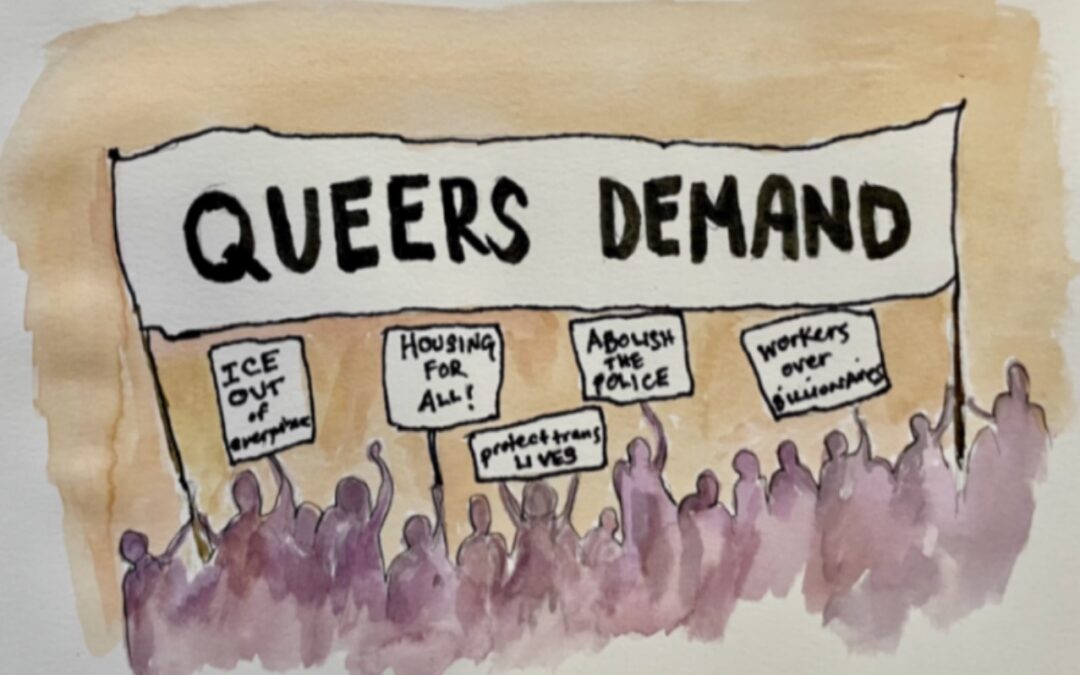 QUEERS DEMAND
ICE
OUT
of
everywhere
HOUSING
FOR
ALL!
protect trans
LIVES
ABOLISH
THE
POLICE
workers
over
Billionaires